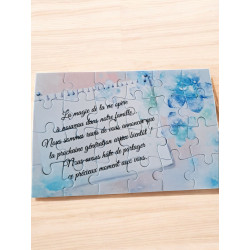 La magie de la vie opère
à nouveau dans notre famille
Nous sommes ravis de vous annoncer que
la prochaine génération arrive bientôt !
Nous avons hâte de partager
ce précieux moment avec vous.